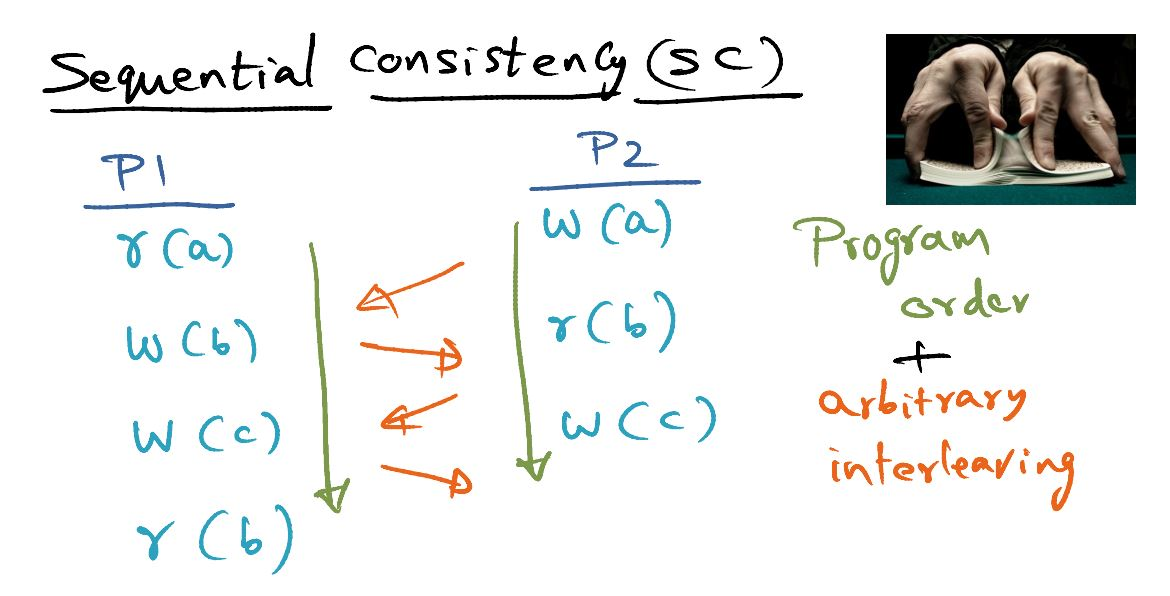 Sequential Consistency (SC)
P1
r(a)
w(b)
w(c)
r(b)
P2
w(a)
r(b)
w(c)
Program
order
+
arbitrary
interleaving